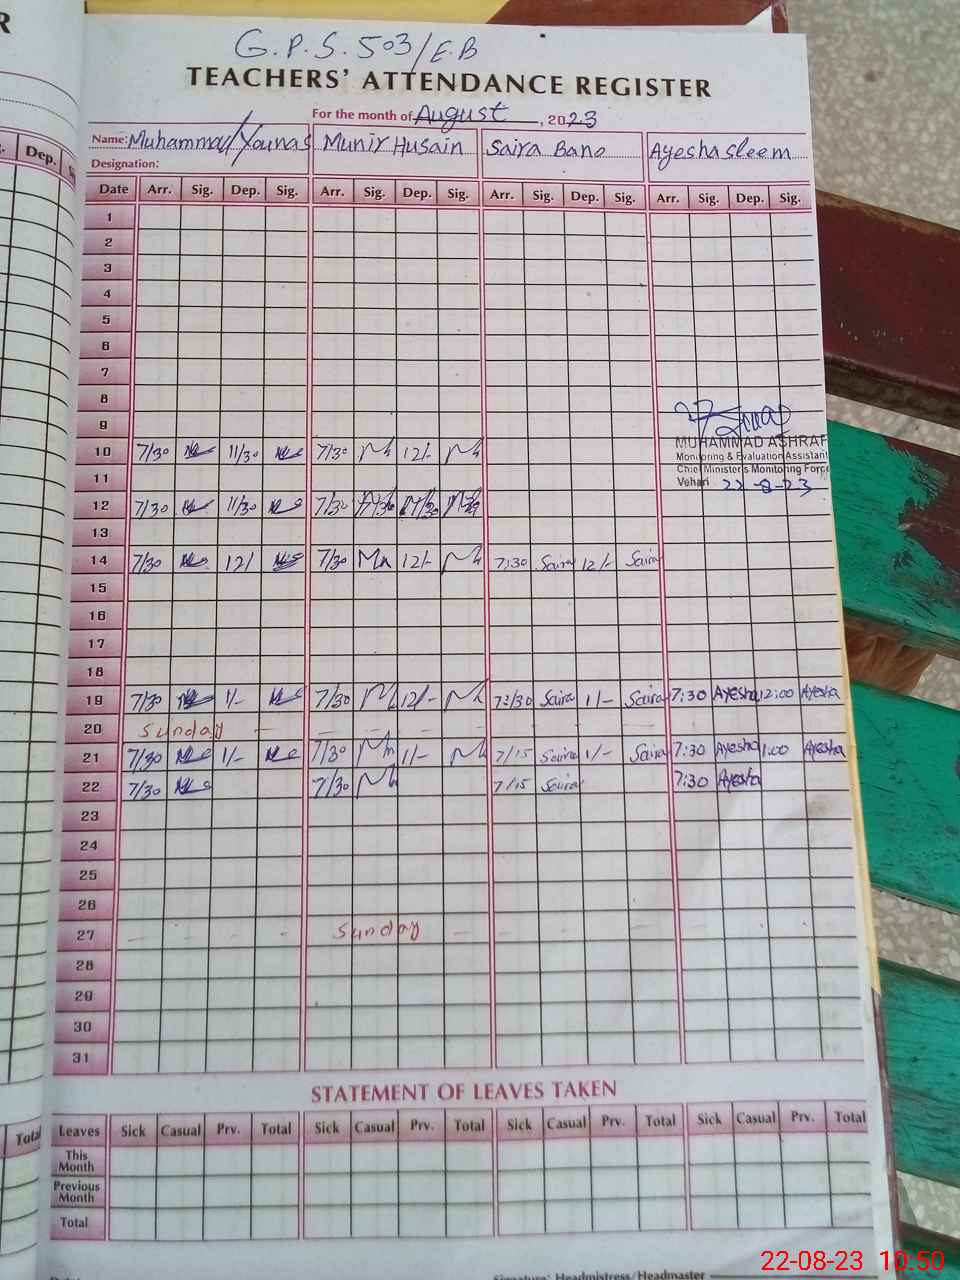 R
G.P.S. 503/E.B
TEACHERS' ATTENDANCE REGISTER
For the month of August, 2023
Name: Muhammad Younas Munir Husain Saira Bano Ayesha Sleem
Designation:
Dep.
Date Arr. Sig. Dep. Sig. Arr. Sig. Dep. Sig. Arr. Sig. Dep. Sig. Arr. Sig. Dep. Sig.
1
2
3
4
5
6
7
8
9
MUHAMMAD ASHRAF
Monitoring & Evaluation Assistant
Chief Minister's Monitoring Force
Vehari 22-8-23
10 7/30 11/30 7/30 12/-
11
12 7/30 11/30 7/30
13
14 7/30 12/ 7/30 12/- 7:30 Saira 12/- Saira
15
16
17
18
19 7/30 1/- 7/30 12/- Saira 1/- Saira 7:30 Ayesha 12:00 Ayesha
20 Sunday
21 7/30 1/- 7/30 1/- 7/15 Saira 1/- Saira 7:30 Ayesha 1:00 Ayesha
22 7/30 7/30 7/15 Saira 7:30 Ayesha
23
24
25
26
27 Sunday
28
29
30
31
STATEMENT OF LEAVES TAKEN
Total
Leaves Sick Casual Prv. Total Sick Casual Prv. Total Sick Casual Prv. Total Sick Casual Prv. Total
This Month
Previous Month
Total
Signature: Headmistress/Headmaster
22-08-23 10:50